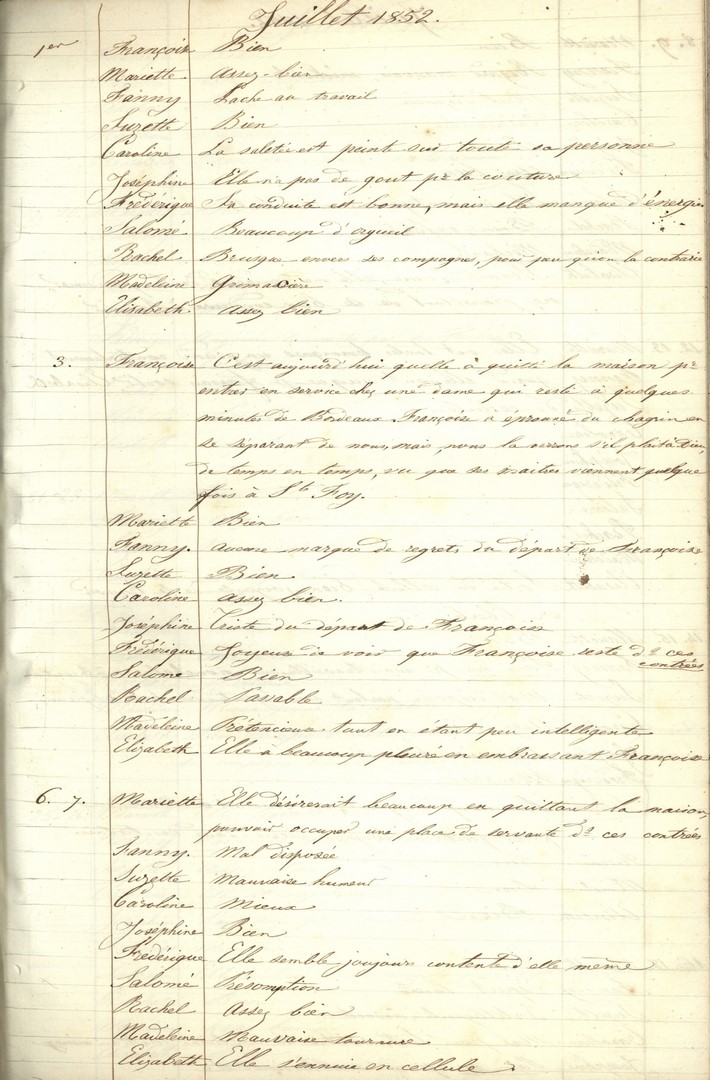 Juillet 1852.
1er Françoise Bien
Mariette Assez-bien
Fanny Lache au travail
Suzette Bien
Caroline La saleté est peint sur toute sa personne
Joséphine Elle n'a pas de gout pr la couture
Frédérique Sa conduite est bonne, mais elle manque d'énergie
Salomé Beaucoup d'orgueil
Rachel Brusque envers ses compagnes, pour peu qu'on la contrarie
Madeleine Grimacière
Elisabeth Assez bien
3. Françoise C'est aujourd'hui quelle à quitté la maison pr
entrer en service chez une dame qui reste à quelques
minutes de Bordeaux Françoise à éprouvé du chagrin en
se séparant de nous, mais, nous la verrons s'il plait à Dieu,
de temps en temps, vu que ses maitres viennent quelque
fois à Ste Foy.
Mariette Bien
Fanny. Aucune marque de regrets du départ de Françoise
Suzette Bien
Caroline Assez bien.
Joséphine Triste du départ de Françoise
Frédérique Joyeuse de voir que Françoise reste ds ces
contrées
Salomé Bien
Rachel Passable
Madeleine Prétencieuse tout en étant peu intelligente
Elizabeth Elle à beaucoup pleuré en embrassant Françoise
6. 7. Mariette Elle désirerait beaucoup en quittant la maison,
pouvoir occuper une place de servante ds ces contrées
Fanny. Mal disposée
Suzette Mauvaise humeur
Caroline Mieux
Joséphine Bien
Frédérique Elle semble toujours contente d'elle même
Salomé Présomption
Rachel Assez bien
Madeleine Mauvaise tournure
Elizabeth Elle s'ennuie en cellule